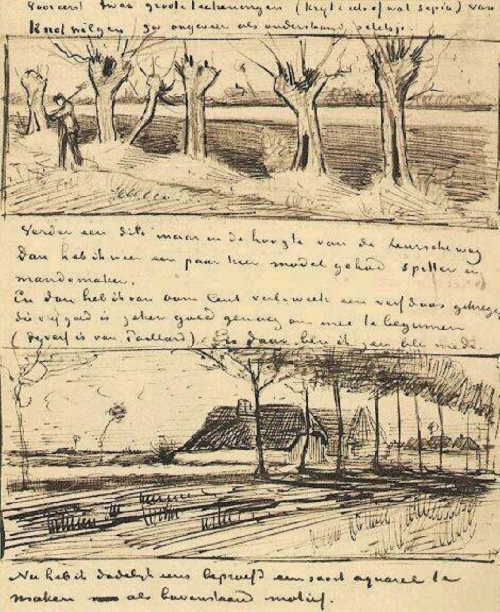 Vooreerst twee groote teekeningen (krijt & iets of wat sepia) van
Knotwilgen zoo ongeveer als onderstaand schetsje.
Verder een dito maar in de hoogte van de Leursche weg
Dan heb ik weer een paar keer model gehad spitter en
mandemaker.
En dan heb ik van oom Cent verl. week een verfdoos gekregen
die vrij goed is zeker goed genoeg om mee te beginnen
(de verf is van Paillard). En daar ben ik zeer blij mede
Nu heb ik dadelijk eens beproefd een soort aquarel te
maken als bovenstaand motief.